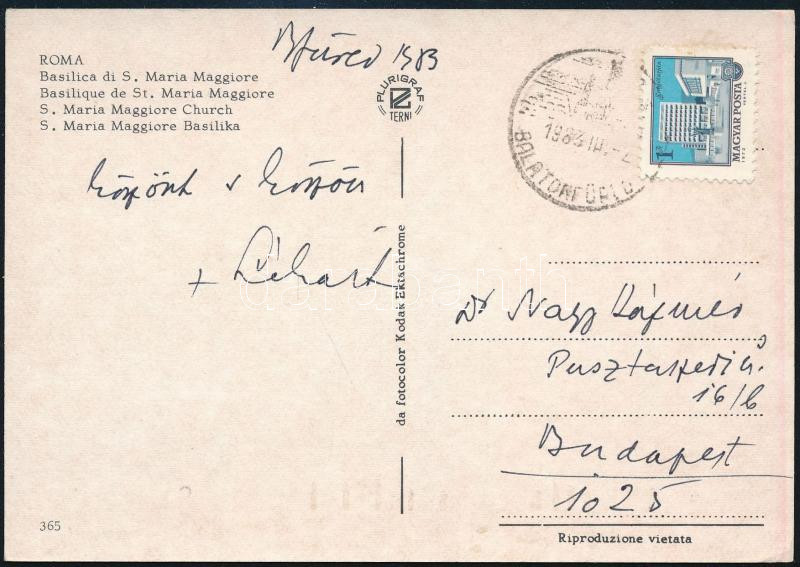 ROMA
Basilica di S. Maria Maggiore
Basilique de St. Maria Maggiore
S. Maria Maggiore Church
S. Maria Maggiore Basilika
Bfüred 1983
PLURIGRAF
TERNI
1983 III.
BALATONFÜRED
1 Ft
MAGYAR POSTA
1972
+
da fotocolor Kodak Ektachrome
Dr Nagy Kálmán
Pusztaszeri ú.
16/b
Budapest
1025
365
Riproduzione vietata
darabanth